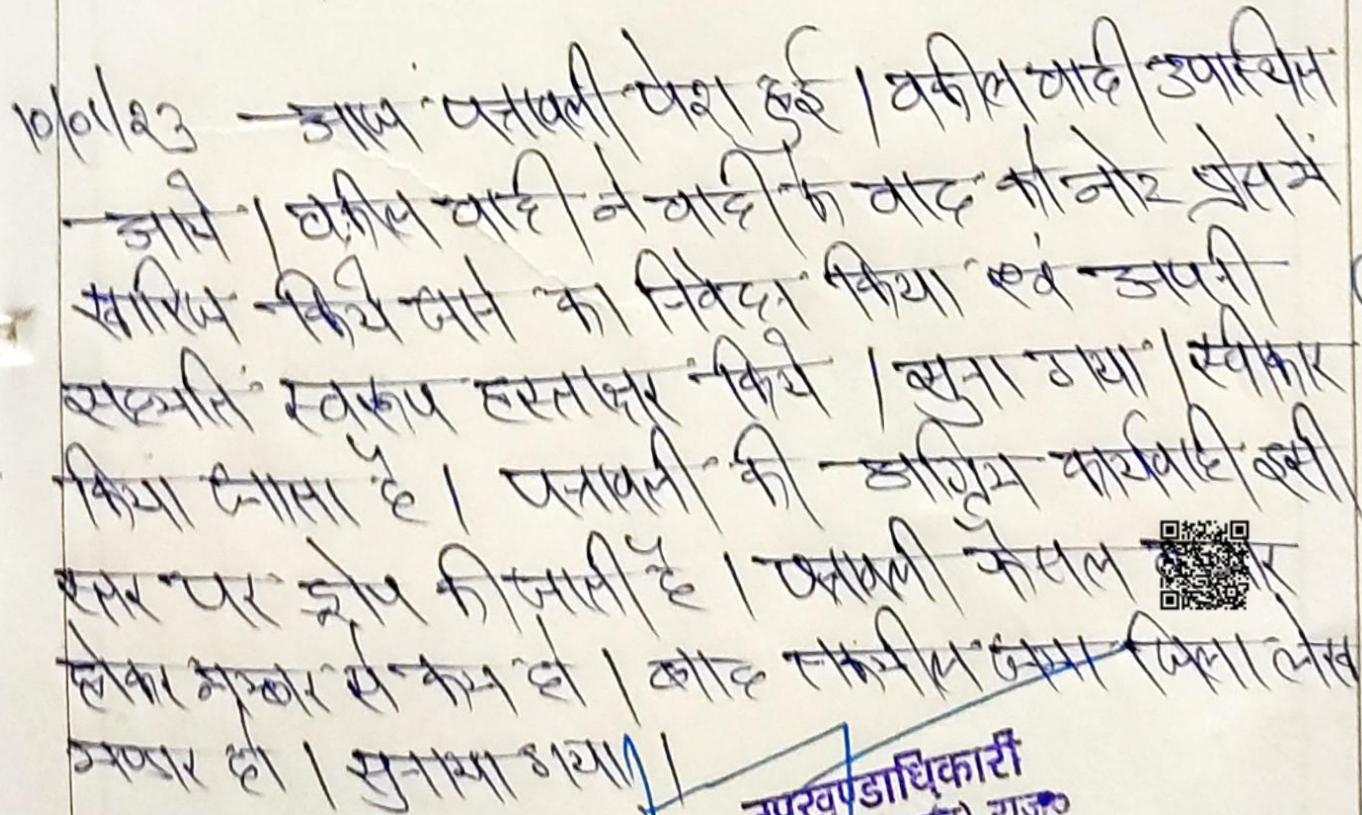 10/01/23 आज पत्रावली पेश हुई । वकील वादी उपस्थित
आये । वकील वादी ने वादी के वाद को नोट प्रेस में
खारिज किये जाने का निवेदन किया एवं अपनी
सहमति स्वरूप हस्ताक्षर किये । सुना गया । स्वीकार
किया जाता है । पत्रावली की अग्रिम कार्यवाही इसी
स्तर पर ड्रोप की जाती है । पत्रावली फैसल
होकर नम्बर से कम हो । बाद तकमील जमा जिला लेख
भण्डार हो । सुनाया गया ।
उपखण्डाधिकारी
राज०